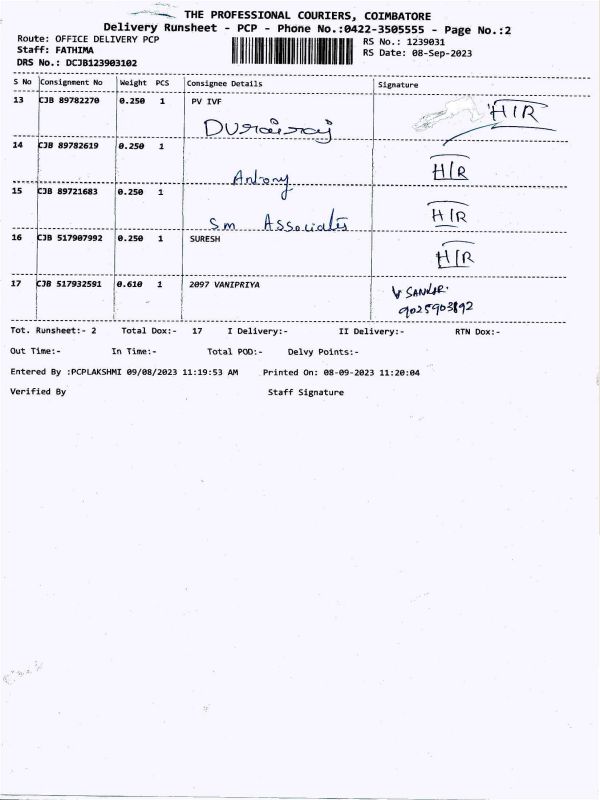 THE PROFESSIONAL COURIERS, COIMBATORE
Delivery Runsheet - PCP - Phone No.:0422-3505555 - Page No.:2
Route: OFFICE DELIVERY PCP RS No.: 1239031
Staff: FATHIMA RS Date: 08-Sep-2023
DRS No.: DCJB123903102
S No Consignment No Weight PCS Consignee Details Signature
13 CJB 89782270 0.250 1 PV IVF H/R
Durairaj
14 CJB 89782619 0.250 1 H/R
Antony
15 CJB 89721683 0.250 1 H/R
Sm Associates
16 CJB 517907992 0.250 1 SURESH H/R
17 CJB 517932591 0.610 1 2097 VANIPRIYA V SANKAR.
9025903892
Tot. Runsheet:- 2 Total Dox:- 17 I Delivery:- II Delivery:- RTN Dox:-
Out Time:- In Time:- Total POD:- Delvy Points:-
Entered By :PCPLAKSHMI 09/08/2023 11:19:53 AM Printed On: 08-09-2023 11:20:04
Verified By Staff Signature